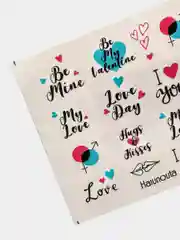 Be My
Valentine
Be
Mine
I
You
Love
Day
My
Love
My
Hugs
&
Kisses
Love
Harunouta